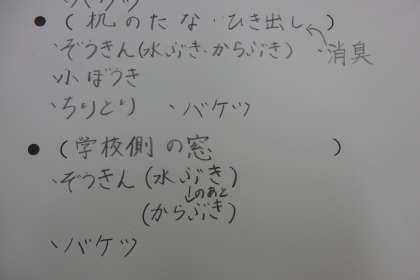 ・バケツ
●(机のたな・ひき出し)
・ぞうきん(水ぶき・からぶき) ・消臭
・小ぼうき
・ちりとり ・バケツ
●(学校側の窓)
・ぞうきん(水ぶき)
↓のあと
(からぶき)
・バケツ